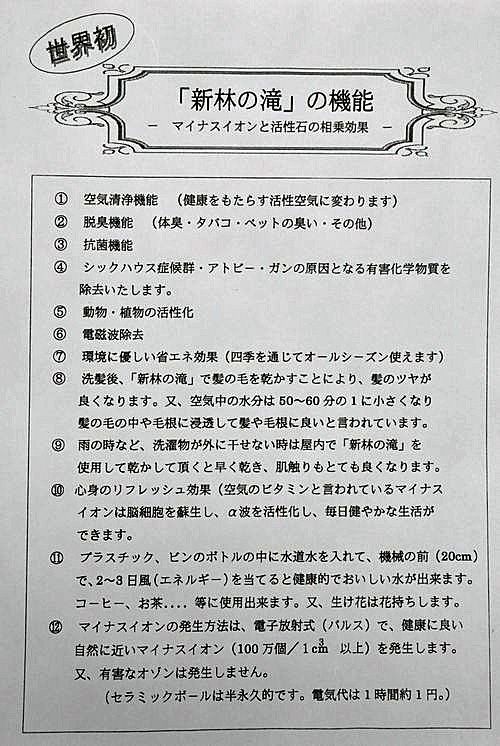 世界初
「新林の滝」の機能
－ マイナスイオンと活性石の相乗効果 －
① 空気清浄機能 （健康をもたらす活性空気に変わります）
② 脱臭機能 （体臭・タバコ・ペットの臭い・その他）
③ 抗菌機能
④ シックハウス症候群・アトピー・ガンの原因となる有害化学物質を
除去いたします。
⑤ 動物・植物の活性化
⑥ 電磁波除去
⑦ 環境に優しい省エネ効果（四季を通じてオールシーズン使えます）
⑧ 洗髪後、「新林の滝」で髪の毛を乾かすことにより、髪のツヤが
良くなります。又、空気中の水分は50～60分の1に小さくなり
髪の毛の中や毛根に浸透して髪や毛根に良いと言われています。
⑨ 雨の時など、洗濯物が外に干せない時は屋内で「新林の滝」を
使用して乾かして頂くと早く乾き、肌触りもとても良くなります。
⑩ 心身のリフレッシュ効果（空気のビタミンと言われているマイナス
イオンは脳細胞を蘇生し、α波を活性化し、毎日健やかな生活が
できます。
⑪ プラスチック、ビンのボトルの中に水道水を入れて、機械の前（20cm）
で、2～3日風（エネルギー）を当てると健康的でおいしい水が出来ます。
コーヒー、お茶．．．．等に使用出来ます。又、生け花は花持ちします。
⑫ マイナスイオンの発生方法は、電子放射式（パルス）で、健康に良い
自然に近いマイナスイオン（100万個／1cm³ 以上）を発生します。
又、有害なオゾンは発生しません。
（セラミックボールは半永久的です。電気代は1時間約1円。）